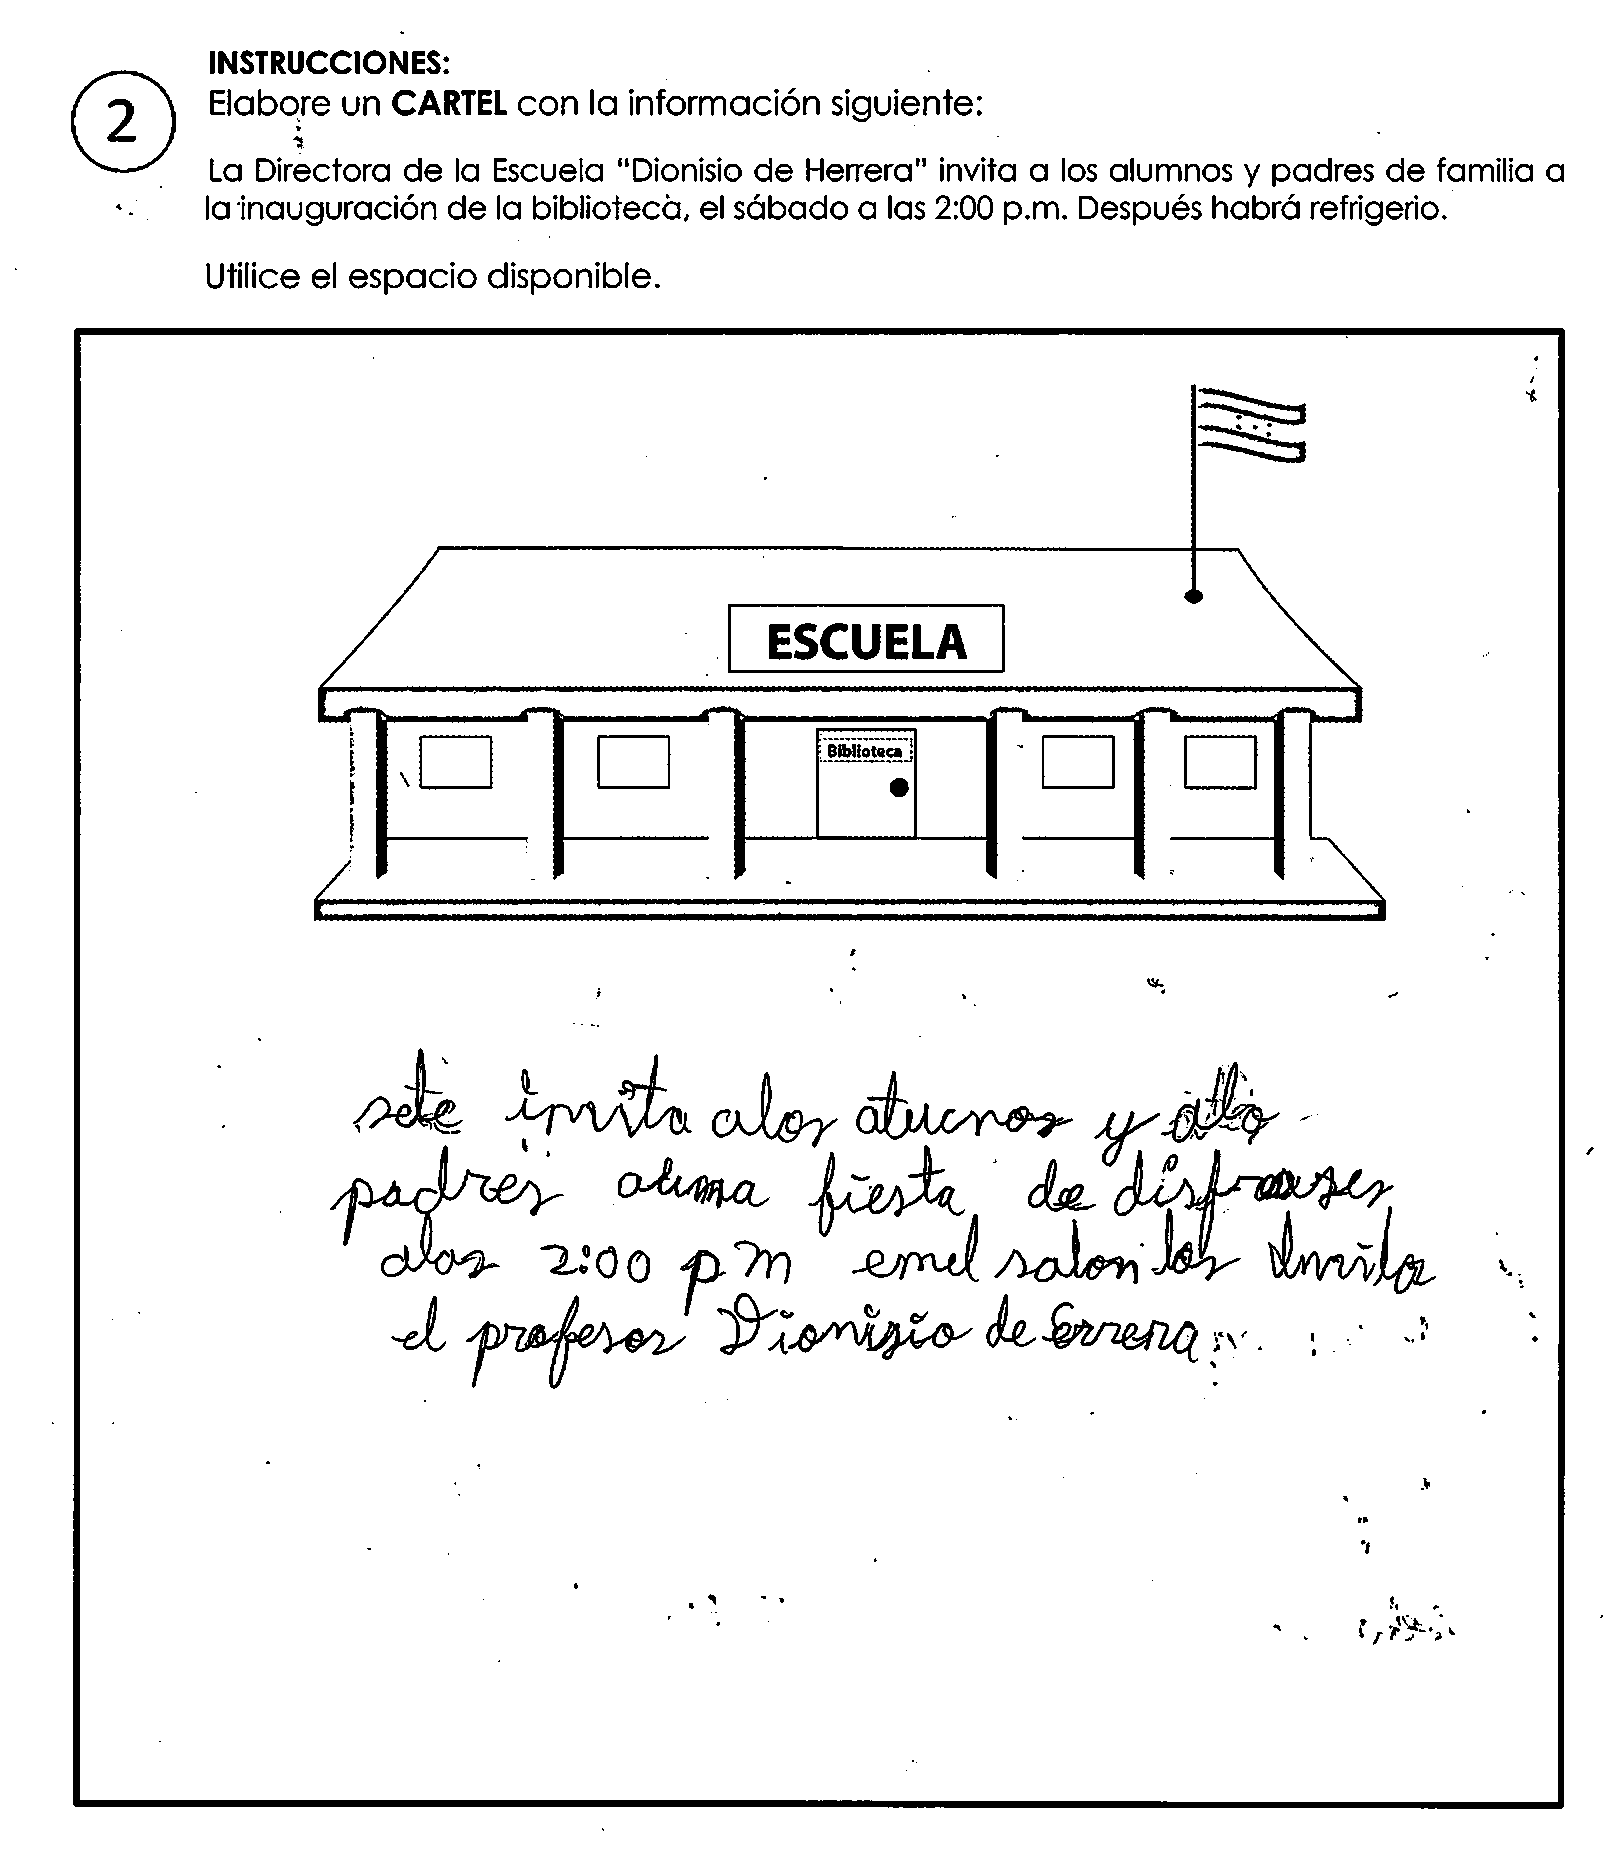 INSTRUCCIONES:
2
Elabore un CARTEL con la información siguiente:
La Directora de la Escuela "Dionisio de Herrera" invita a los alumnos y padres de familia a
la inauguración de la biblioteca, el sábado a las 2:00 p.m. Después habrá refrigerio.
Utilice el espacio disponible.
ESCUELA
Biblioteca
sete invita alos atucnos y
padres auna fiesta de disfrases
alas 2:00 p m emel salon los Invita
el profesor Dionisio de Errera